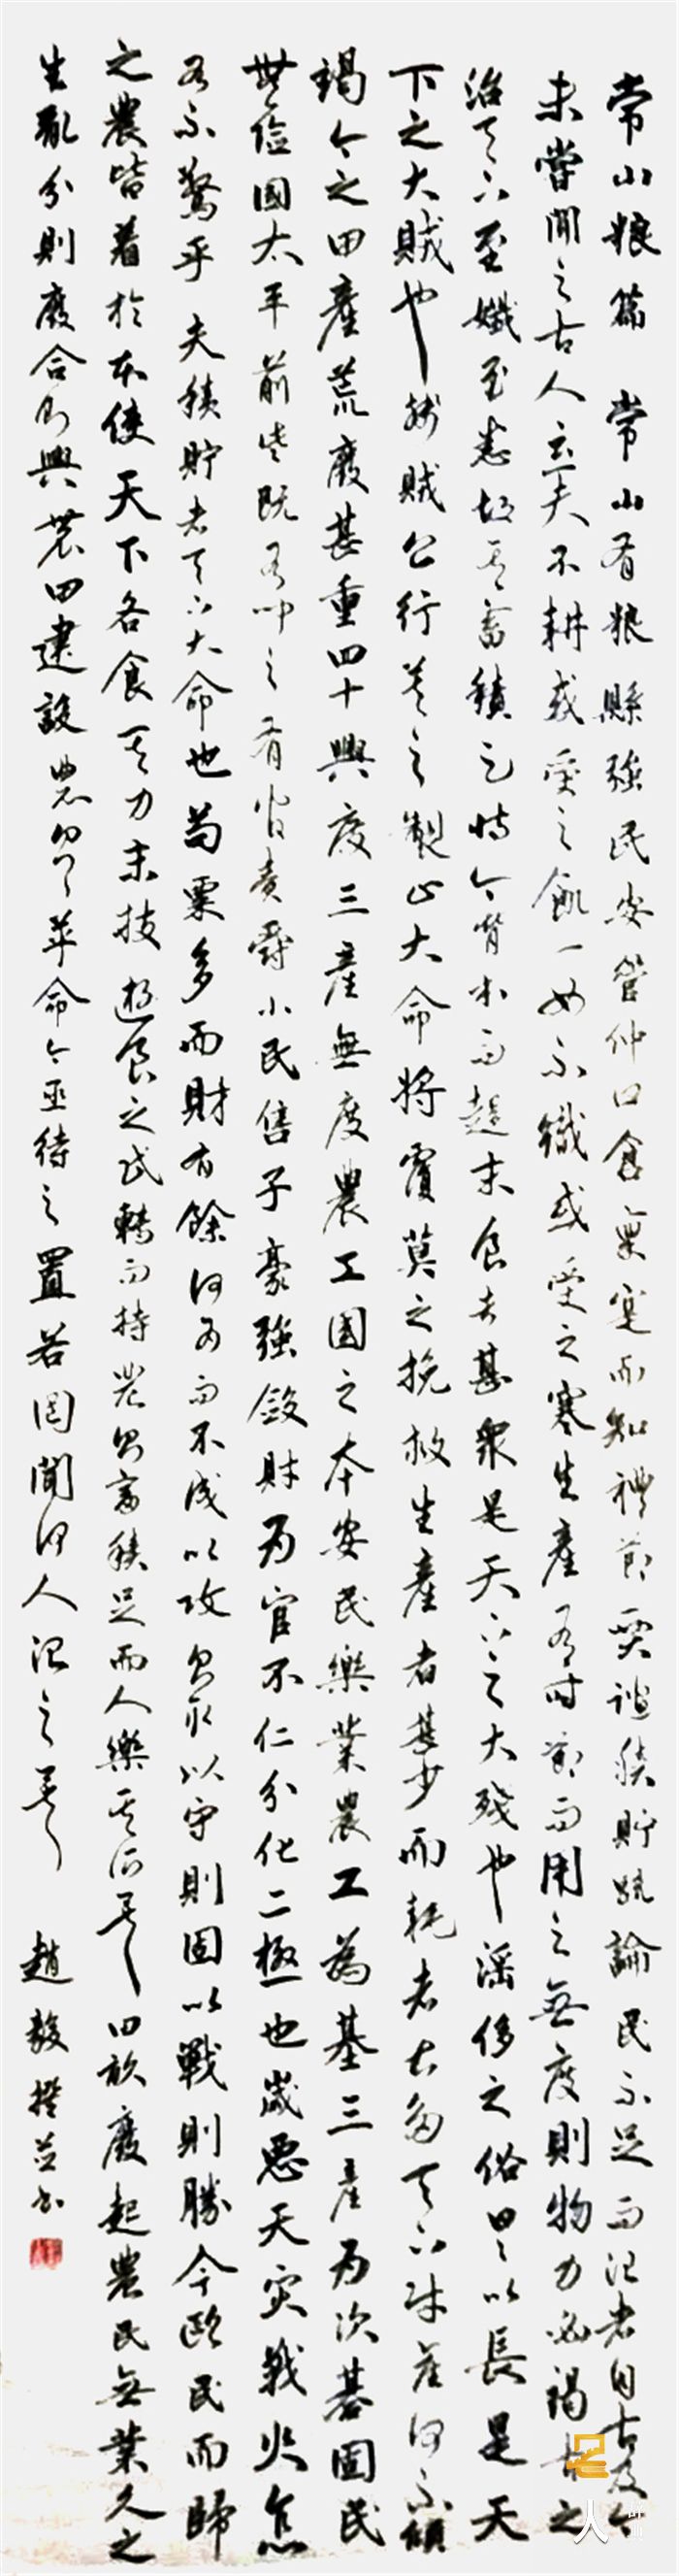 常山粮篇 常山有粮縣強民安管仲曰倉稟寔而知禮節賈誼積貯疏論民不足而治者自古及今
未嘗聞之古人云一夫不耕或受之飢一女不織或受之寒生產有时節而用之無度則物力必竭古之
治天下至孅至悉故其畜積足恃今背本而趨末食者甚衆是天下之大殘也淫侈之俗日日以長是天
下之大賊也殘賊公行莫之製止大命將覆莫之挽救生產者甚少而耗者太多天下財產何不傾
竭今之田產荒廢甚重四十興廢三產無度農工國之本安民樂業農工為基三產为次基固民
無儉國太平前些既有聞之有官賣爵小民售子豪強斂財为官不仁分化二極也歲惡天灾戰火怎
有不驚乎夫積貯者天下大命也苟粟多而財有餘何为而不成以攻則取以守則固以戰則勝今毆民而歸
之農皆着於本使天下各食其力末技遊食之民轉而持農則畜積足而人樂其所矣田畝廢起農民無業久之
生亂分則廢合則興農田建設農業革命今亟待之置若罔聞何人治之矣 趙毅撰並书
人